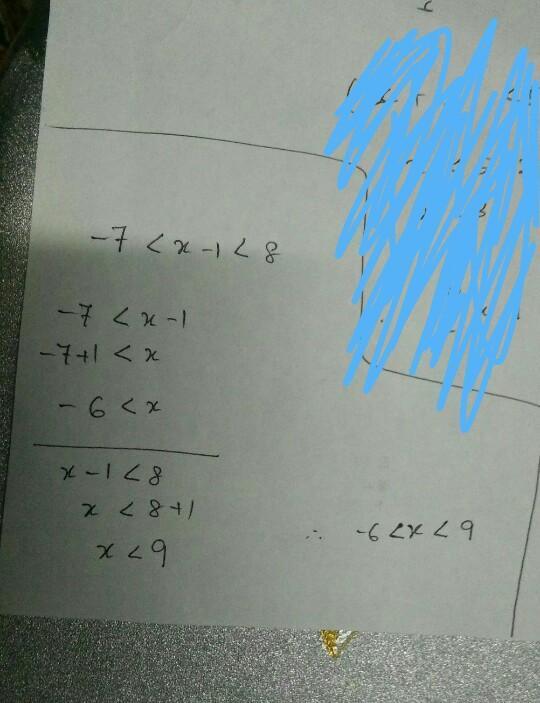 -7 < x - 1 < 8
-7 < x - 1
-7+1 < x
-6 < x
x - 1 < 8
x < 8 + 1
x < 9
∴ -6 < x < 9